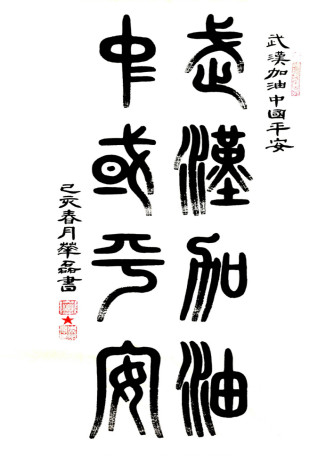 武漢加油中國平安
武漢加油
中或平安
己亥春月華磊書